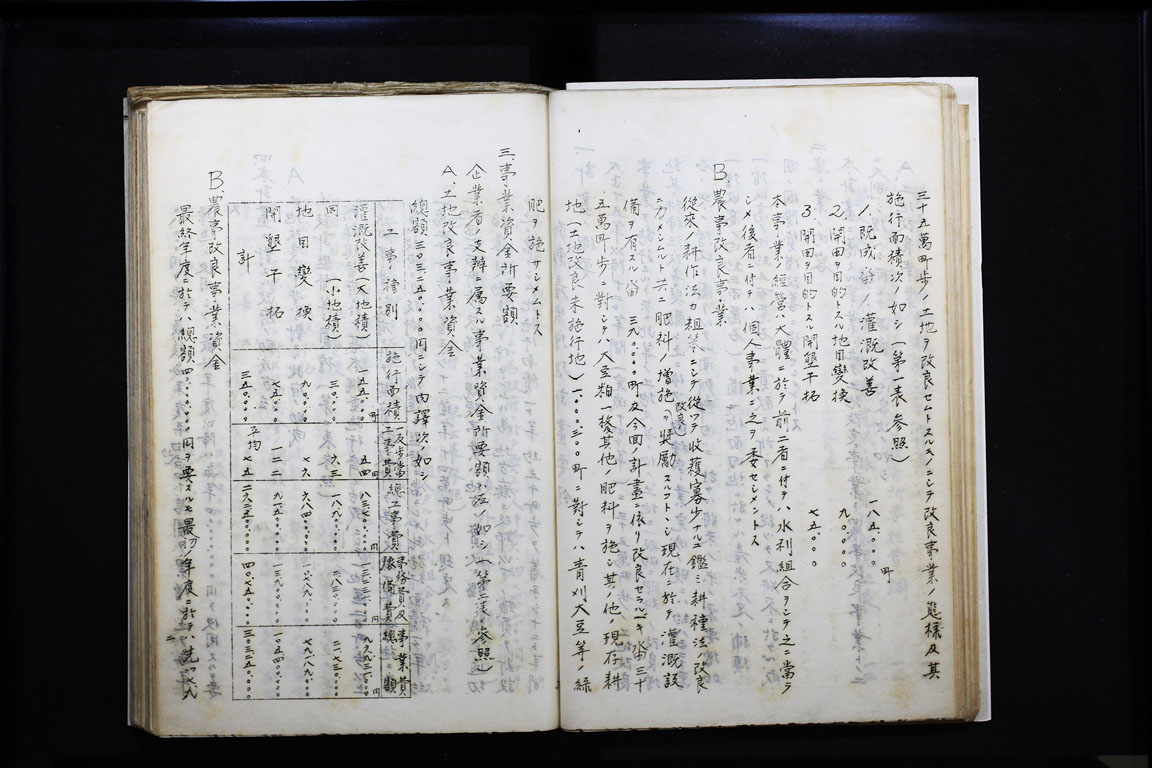 三十五萬町歩ノ土地ヲ改良セムトスルモノニシテ改良事業ノ態様及其
施行面積次ノ如シ(第一表参照)
1. 既成畓ノ灌漑改善 一八五、〇〇〇町
2. 開田ヲ目的トスル地目變換 九〇、〇〇〇
3. 開田ヲ目的トスル開墾干拓 七五、〇〇〇
本事業ノ經營ハ大體ニ於テ前二者ニ付テハ水利組合ヲシテ之ニ當ラ
シメ後者ニ付テハ個人事業ニ之ヲ委セシメントス
B 農事改良事業
從來ノ耕作法カ粗笨ニシテ從ツテ收穫寡少ナルニ鑑ミ耕種法ノ改良
ニ力メシムルト共ニ肥料ノ増施改良ヲ奬勵スルコトトシ現在ニ於テ灌漑設
備ヲ有スル畓 三九〇、〇〇〇町及今回ノ計畫ニ依リ改良セラルベキ畓三十
五萬町歩ニ對シテハ大豆粕一發其他ノ肥料ヲ施シ其ノ他ノ現存耕
地(土地改良未施行地)一、〇〇〇、三〇〇町ニ對シテハ青刈大豆等ノ緑
肥ヲ施サシメムトス
三、事業資金所要額
企業者ノ支辨ニ属スル事業資金所要額ハ次ノ如シ(第二表参照)
A、土地改良事業資金
總額三〇三、二五〇、〇〇〇円ニシテ内譯次ノ如シ
工事種別 施行面積 一反歩當工事費 總工事費 事務費及豫備費 事業費總額
灌漑改善(大地積) 一五五、〇〇〇町 五四 八三、七〇〇、〇〇〇円
同(小地積) 三〇、〇〇〇 六三 一八、九〇〇、〇〇〇
地目變換 九〇、〇〇〇 七六 六八、四〇〇、〇〇〇
開墾干拓 七五、〇〇〇 一二二 九一、五〇〇、〇〇〇
計 三五〇、〇〇〇 平均七五 二六二、五〇〇、〇〇〇 四〇、七五〇、〇〇〇 三〇三、二五〇、〇〇〇
B、農事改良事業資金
最終年度ニ於テハ總額四〇、〇〇〇、〇〇〇円ヲ要スルモ最初ノ年度ニ於テハ先ツ